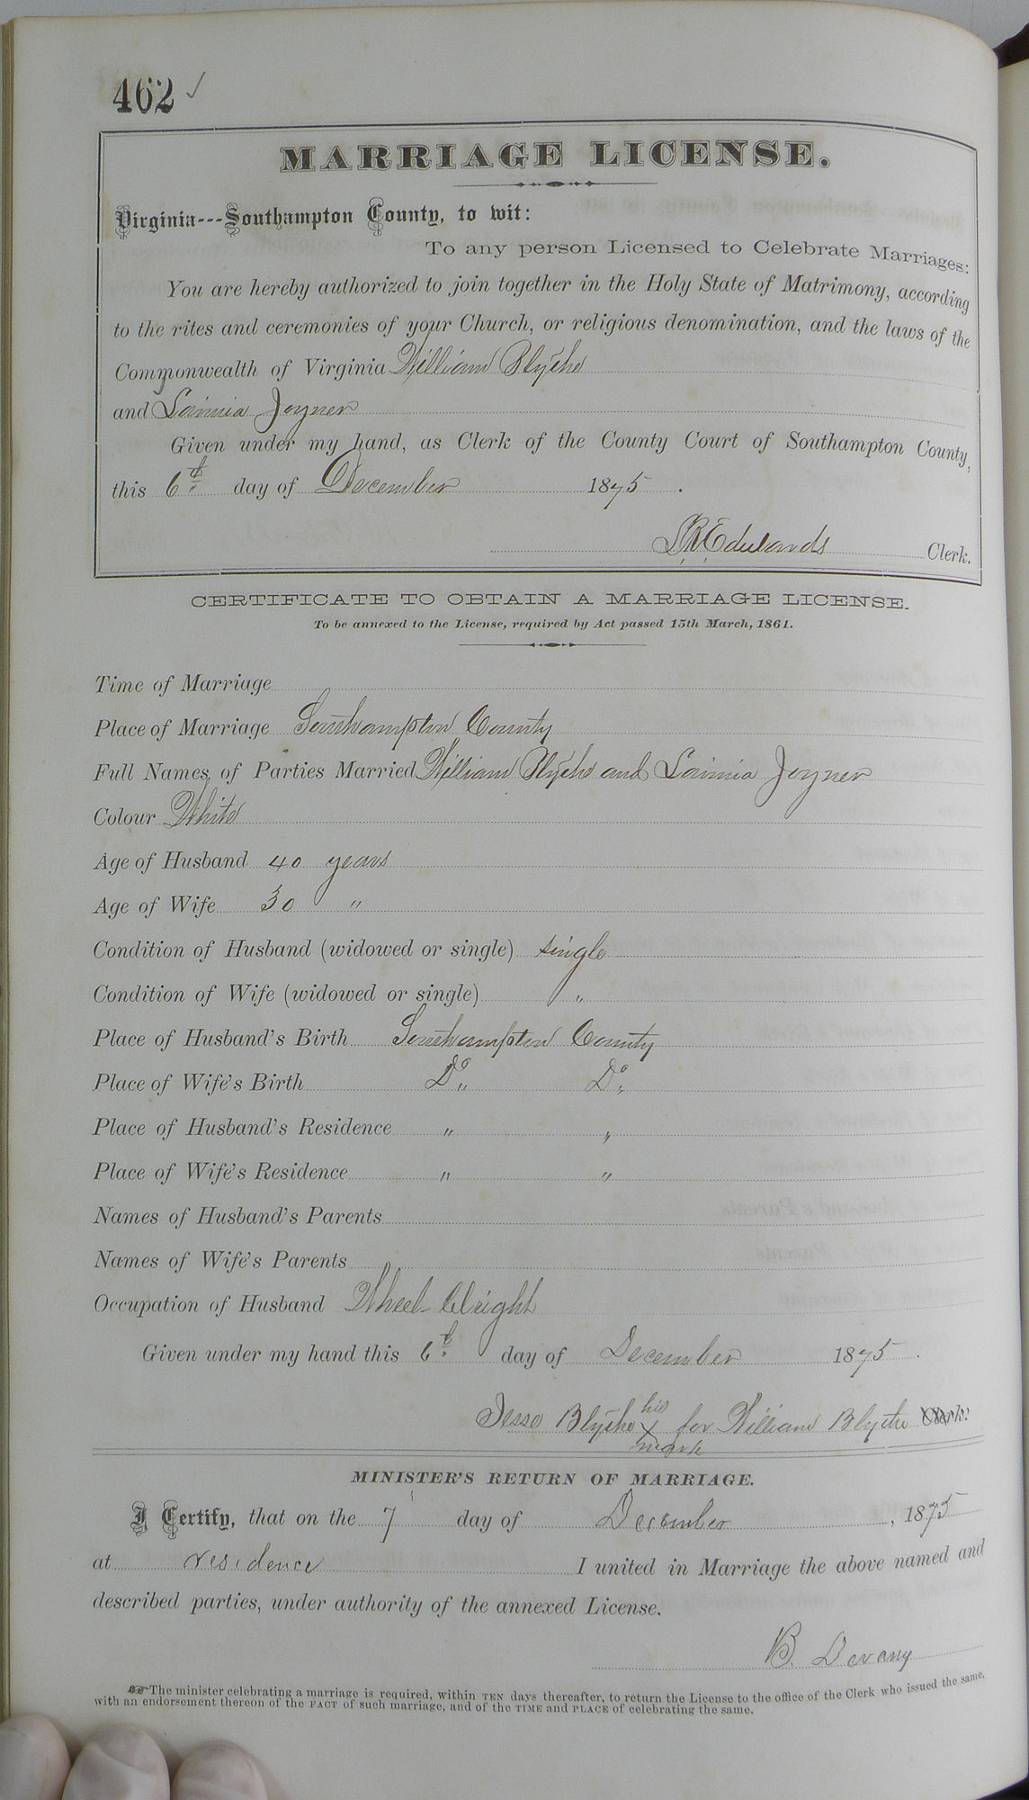 462 ✓
MARRIAGE LICENSE.
Virginia---Southampton County, to wit:
To any person Licensed to Celebrate Marriages:
You are hereby authorized to join together in the Holy State of Matrimony, according
to the rites and ceremonies of your Church, or religious denomination, and the laws of the
Commonwealth of Virginia William Blythe
and Joyner
Given under my hand, as Clerk of the County Court of Southampton County,
this 6th day of December 1875.
Edwards Clerk.
CERTIFICATE TO OBTAIN A MARRIAGE LICENSE.
To be annexed to the License, required by Act passed 15th March, 1861.
Time of Marriage
Place of Marriage Southampton County
Full Names of Parties Married William Blythe and Joyner
Colour White
Age of Husband 40 years
Age of Wife 30 "
Condition of Husband (widowed or single) single
Condition of Wife (widowed or single) "
Place of Husband's Birth Southampton County
Place of Wife's Birth Do " Do "
Place of Husband's Residence " "
Place of Wife's Residence " "
Names of Husband's Parents
Names of Wife's Parents
Occupation of Husband Wheel Wright
Given under my hand this 6th day of December 1875.
Jesse Blythe his X mark for William Blythe Clerk.
MINISTER'S RETURN OF MARRIAGE.
I Certify, that on the 7 day of December, 1875
at residence I united in Marriage the above named and
described parties, under authority of the annexed License.
B. Devany
The minister celebrating a marriage is required, within TEN days thereafter, to return the License to the office of the Clerk who issued the same,
with an endorsement thereon of the FACT of such marriage, and of the TIME and PLACE of celebrating the same.